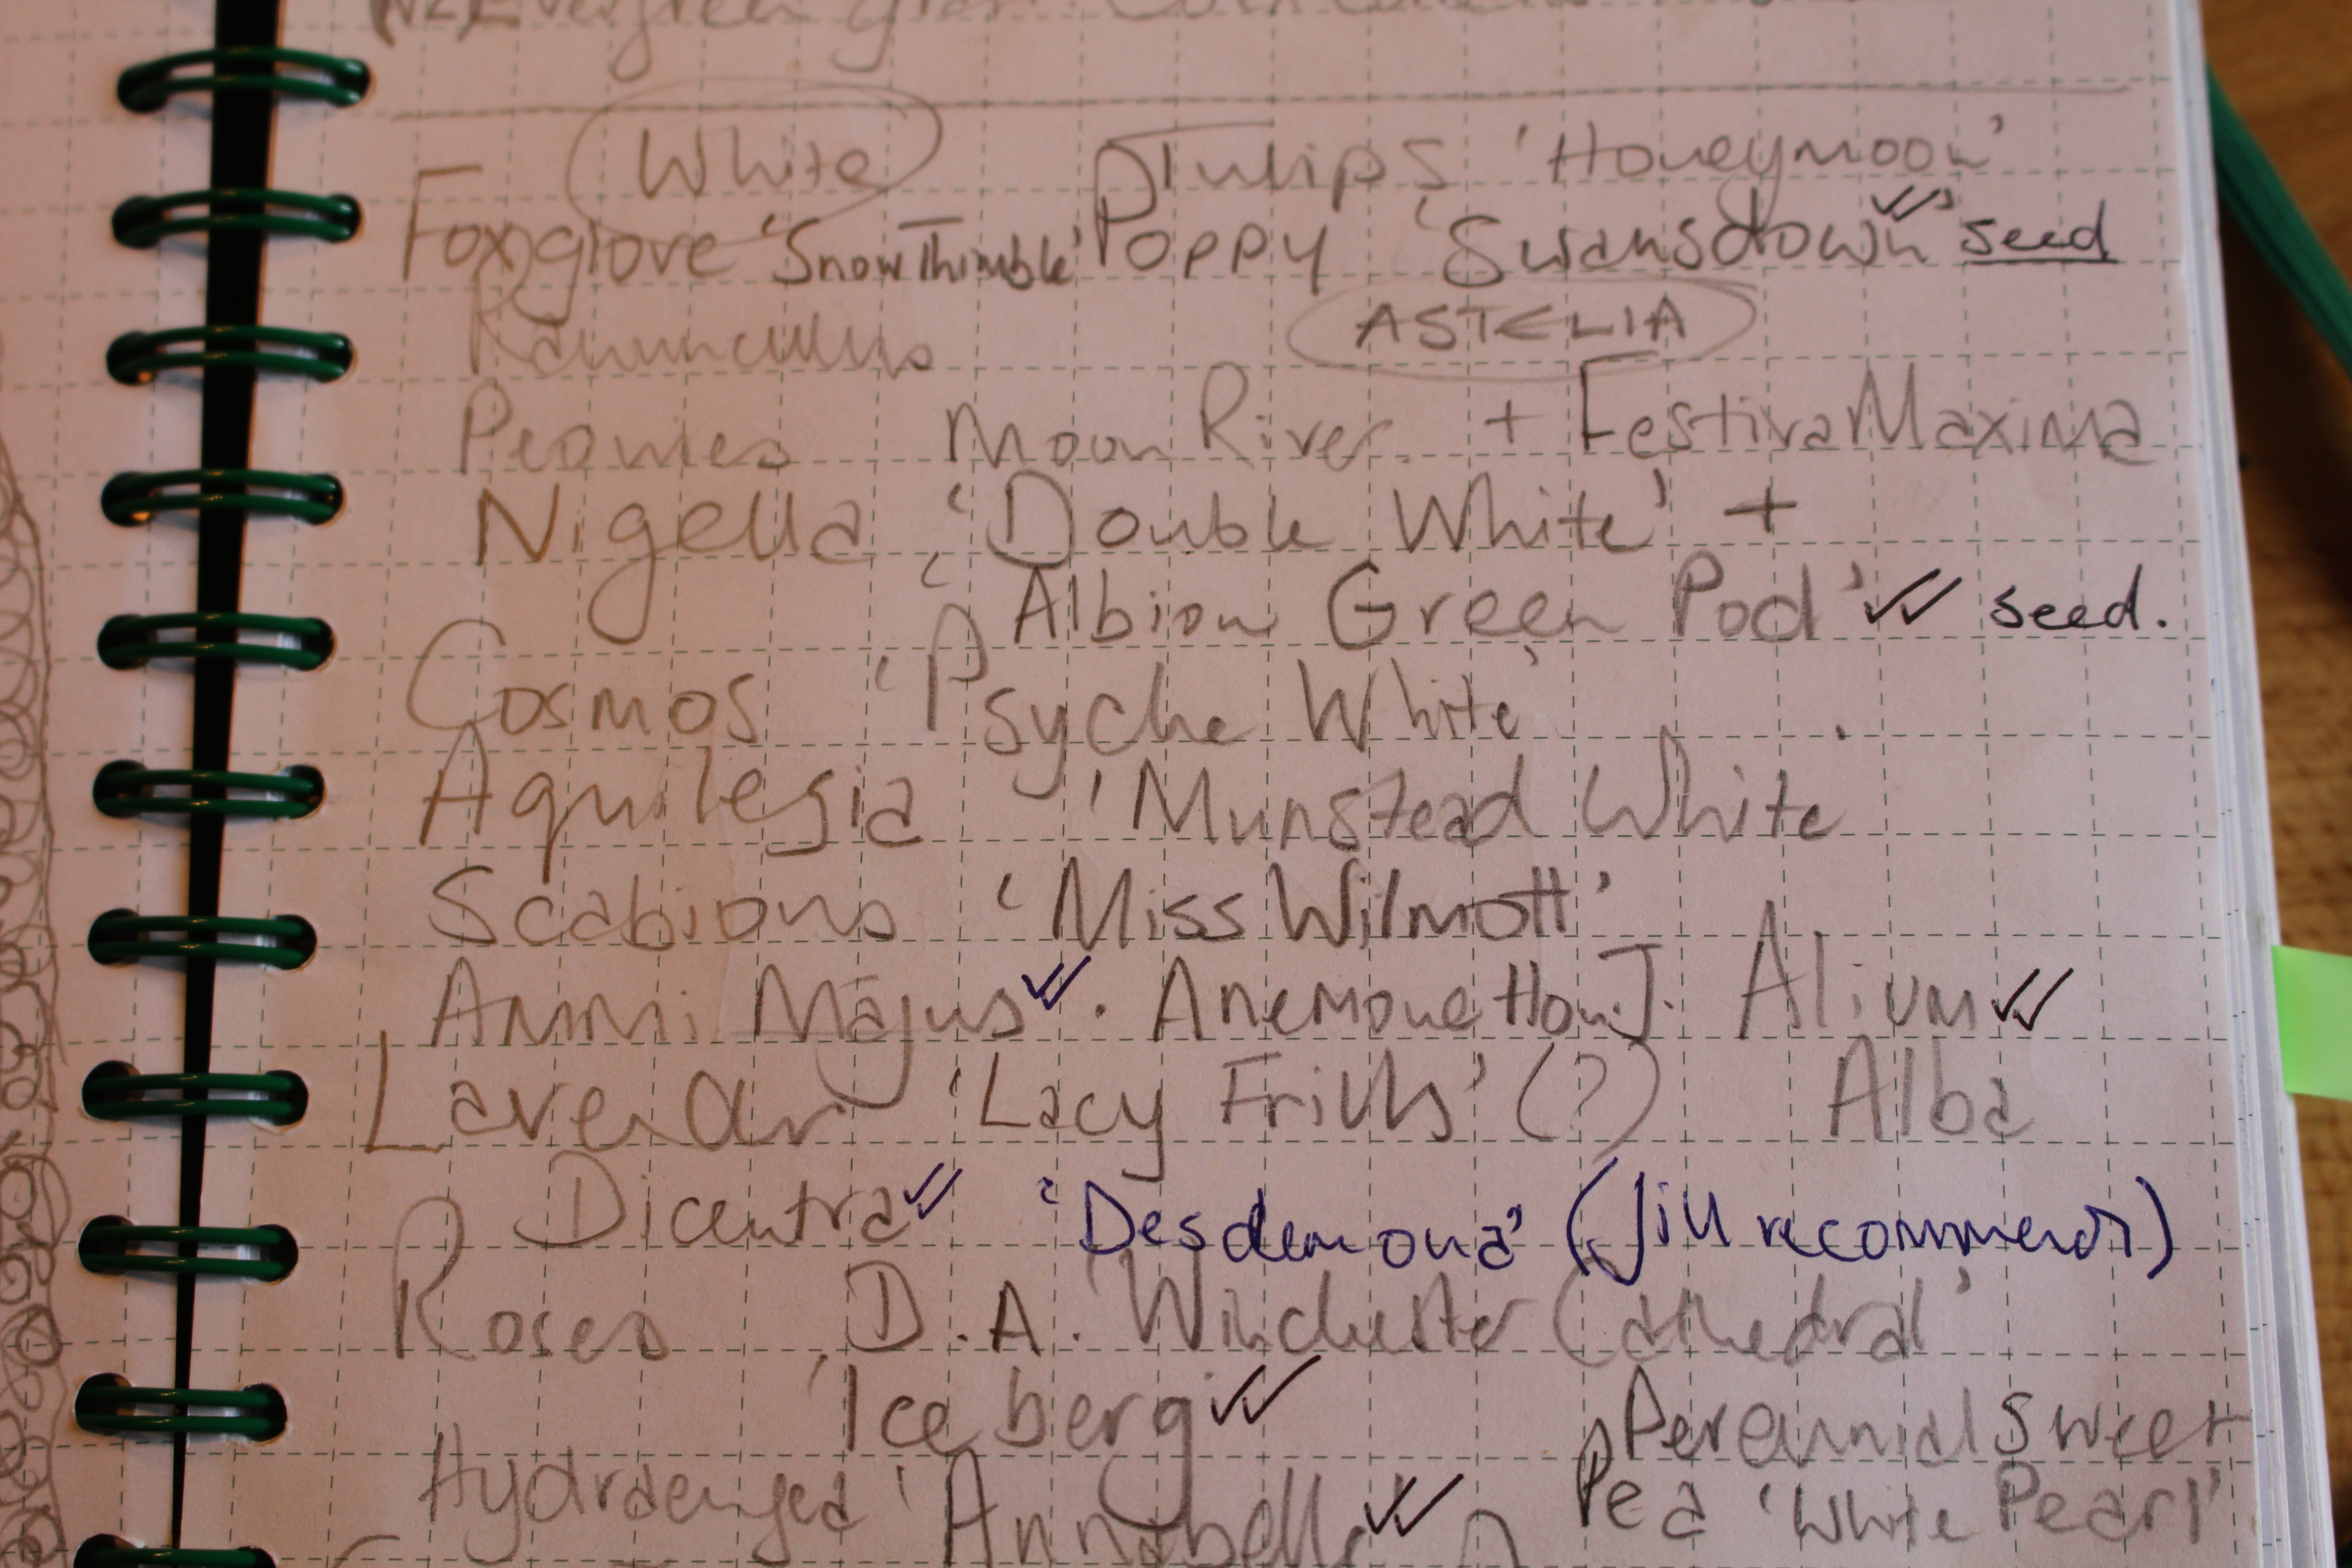 (NZ) Evergreen
White Tulips 'Honeymoon'
Foxglove 'Snow Thimble' Poppy 'Swansdown' ✓✓ seed
Ranunculus ASTELIA
Peonies Moon River. + Festiva Maxima
Nigella 'Double White' +
'Albion Green Pod' ✓✓ seed.
Cosmos 'Psyche White'
Aquilegia 'Munstead White
Scabious 'Miss Wilmott'
Ammi Majus ✓✓ . Anemone Hon. J. Alium ✓✓
Lavendar 'Lacy Frills' (?) Alba
Dicentra ✓✓ 'Desdemona' (Jill recommends)
Roses D.A. 'Winchester Cathedral'
'Iceberg' ✓✓ Perennial Sweet
Hydraengea 'Annabelle ✓✓ Pea 'White Pearl'